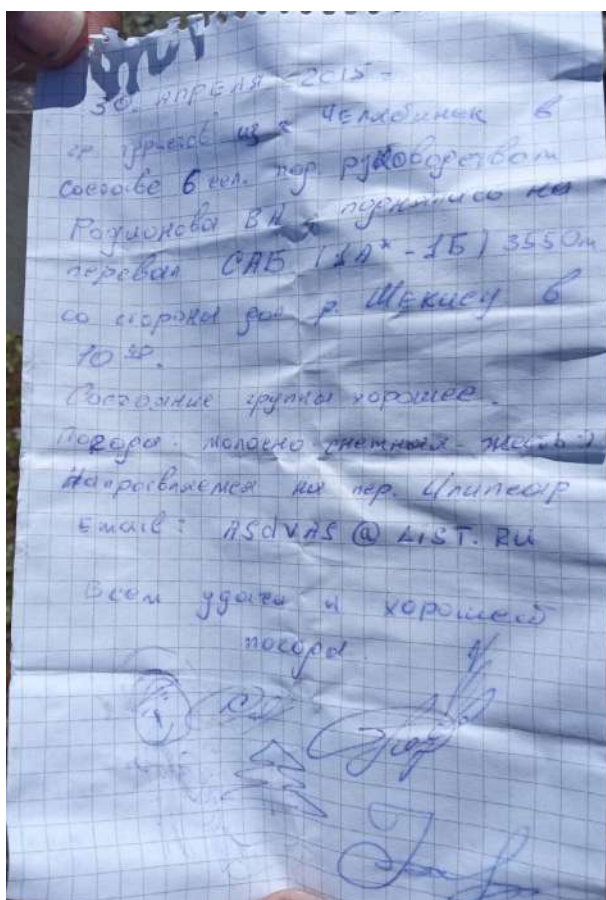 30 апреля 2015
гр. туристов из г. Челябинск в
составе 6 чел. под руководством
Родионова ВН поднялись на
перевал САБ (1А* - 1Б) 3550м
со стороны дол р. Шекису в
10 30.
Состояние группы хорошее.
Погода молочно снежная - :)
Направляемся на пер.
Email: ASdVAS@LIST.RU
Всем удачи и хорошей
погоды.